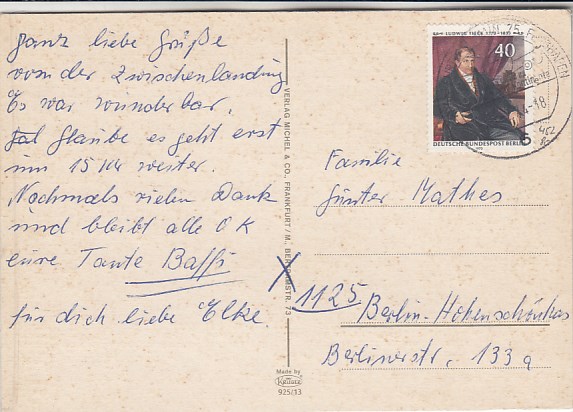 ganz liebe Grüße
von der Zwischenlandung
Es war wunderbar,
Glaube es geht erst
um 15 Uhr weiter.
Nochmals vielen Dank
und bleibt alle OK
eure Tante Baffi
für dich liebe Elke
VERLAG MICHEL & CO., FRANKFURT/M., BERTRAMSTR. 73
Made by
Krüger
925/13
LUDWIG TIECK 1773-1853
40
DEUTSCHE BUNDESPOST BERLIN
Familie
Günter Mathes
X 1125 Berlin-Hohenschönhas
Berlinerstr. 133a